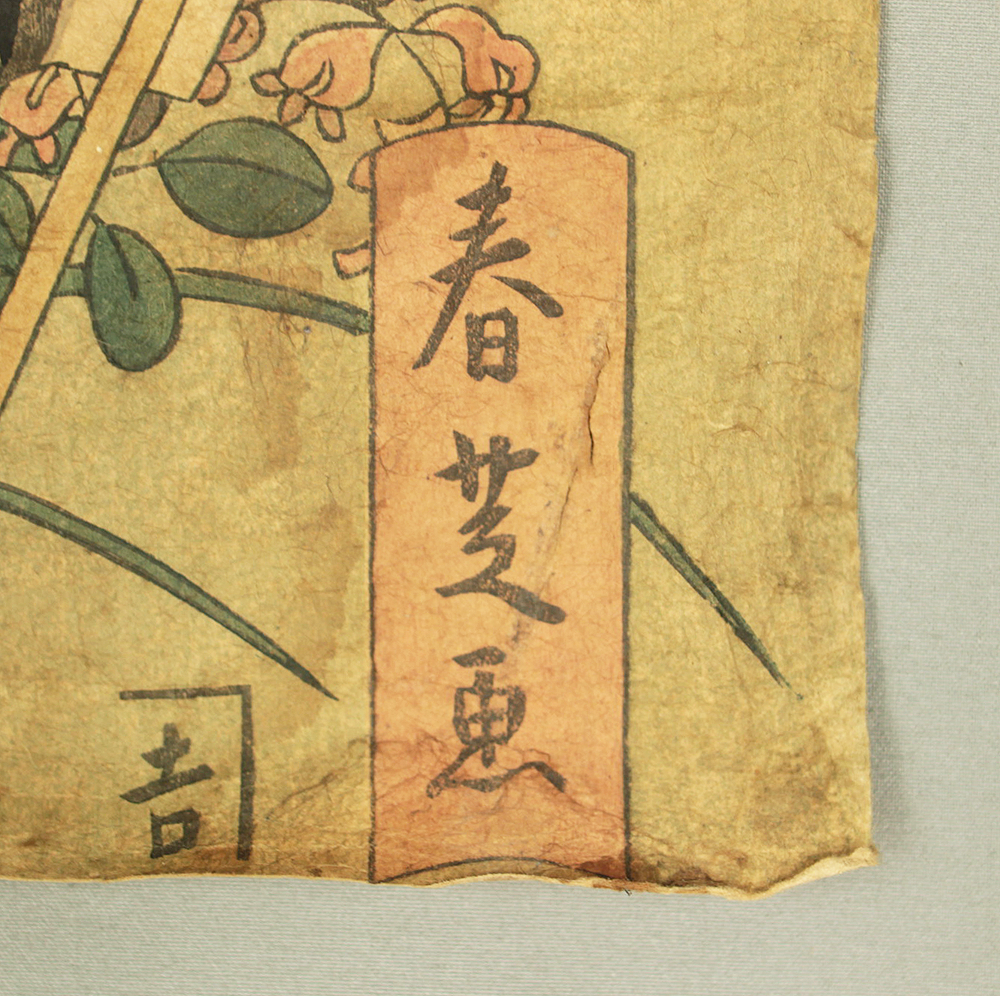 春芝画
吉